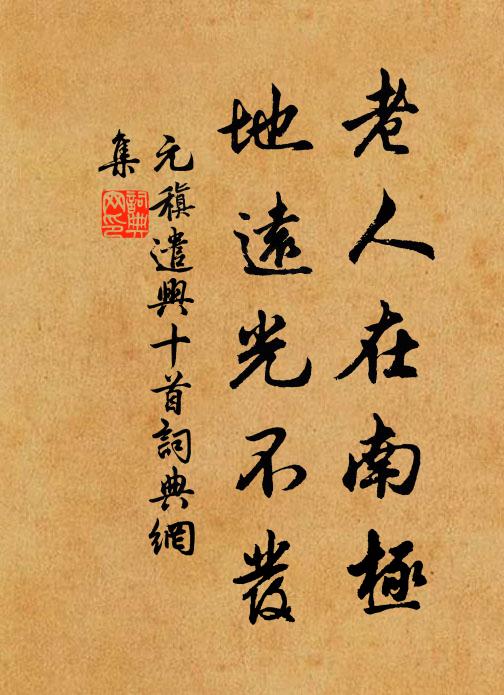 老人在南極
地遠光不發
元稹遣興十首詞典網
集
詞典
网印